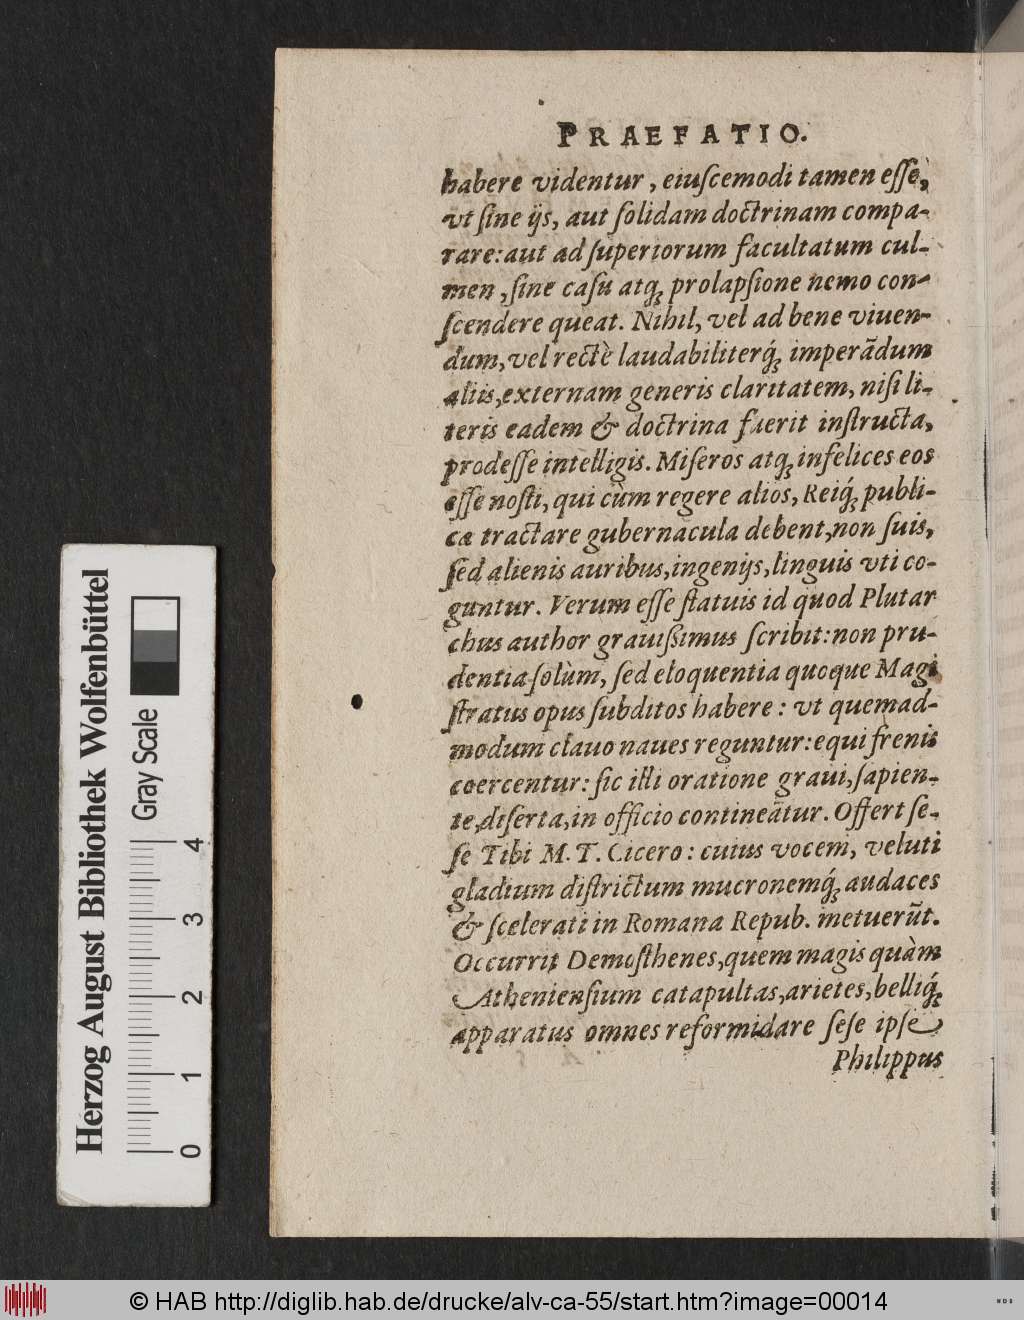 PRAEFATIO.
habere videntur, eiuſcemodi tamen eſſe,
vt ſine ijs, aut ſolidam doctrinam compa-
rare: aut ad ſuperiorum facultatum cul-
men, ſine caſu atq; prolapſione nemo con-
ſcendere queat. Nihil, vel ad bene viuen-
dum, vel rectè laudabiliterq́; imperãdum
aliis, externam generis claritatem, niſi li-
teris eadem & doctrina fuerit inſtructa,
prodeſſe intelligis. Miſeros atq; infelices eos
eſſe noſti, qui cùm regere alios, Reiq́; publi-
cæ tractare gubernacula debent, non ſuis,
ſed alienis auribus, ingenijs, linguis vti co-
guntur. Verum eſſe ſtatuis id quod Plutar
chus author grauiſſimus ſcribit: non pru-
dentia ſolùm, ſed eloquentia quoque Magi
ſtratus opus ſubditos habere: vt quemad-
modum clauo naues reguntur: equi frenis
coercentur: ſic illi oratione graui, ſapien-
te, diſerta, in officio contineãtur. Offert ſe-
ſe Tibi M. T. Cicero: cuius vocem, veluti
gladium diſtrictum mucronemq́; audaces
& ſcelerati in Romana Repub. metuerũt.
Occurrit Demoſthenes, quem magis quàm
Athenienſium catapultas, arietes, belliq́;
apparatus omnes reformidare ſeſe ipſe
Philippus
Herzog August Bibliothek Wolfenbüttel
Gray Scale
0 1 2 3 4
© HAB http://diglib.hab.de/drucke/alv-ca-55/start.htm?image=00014